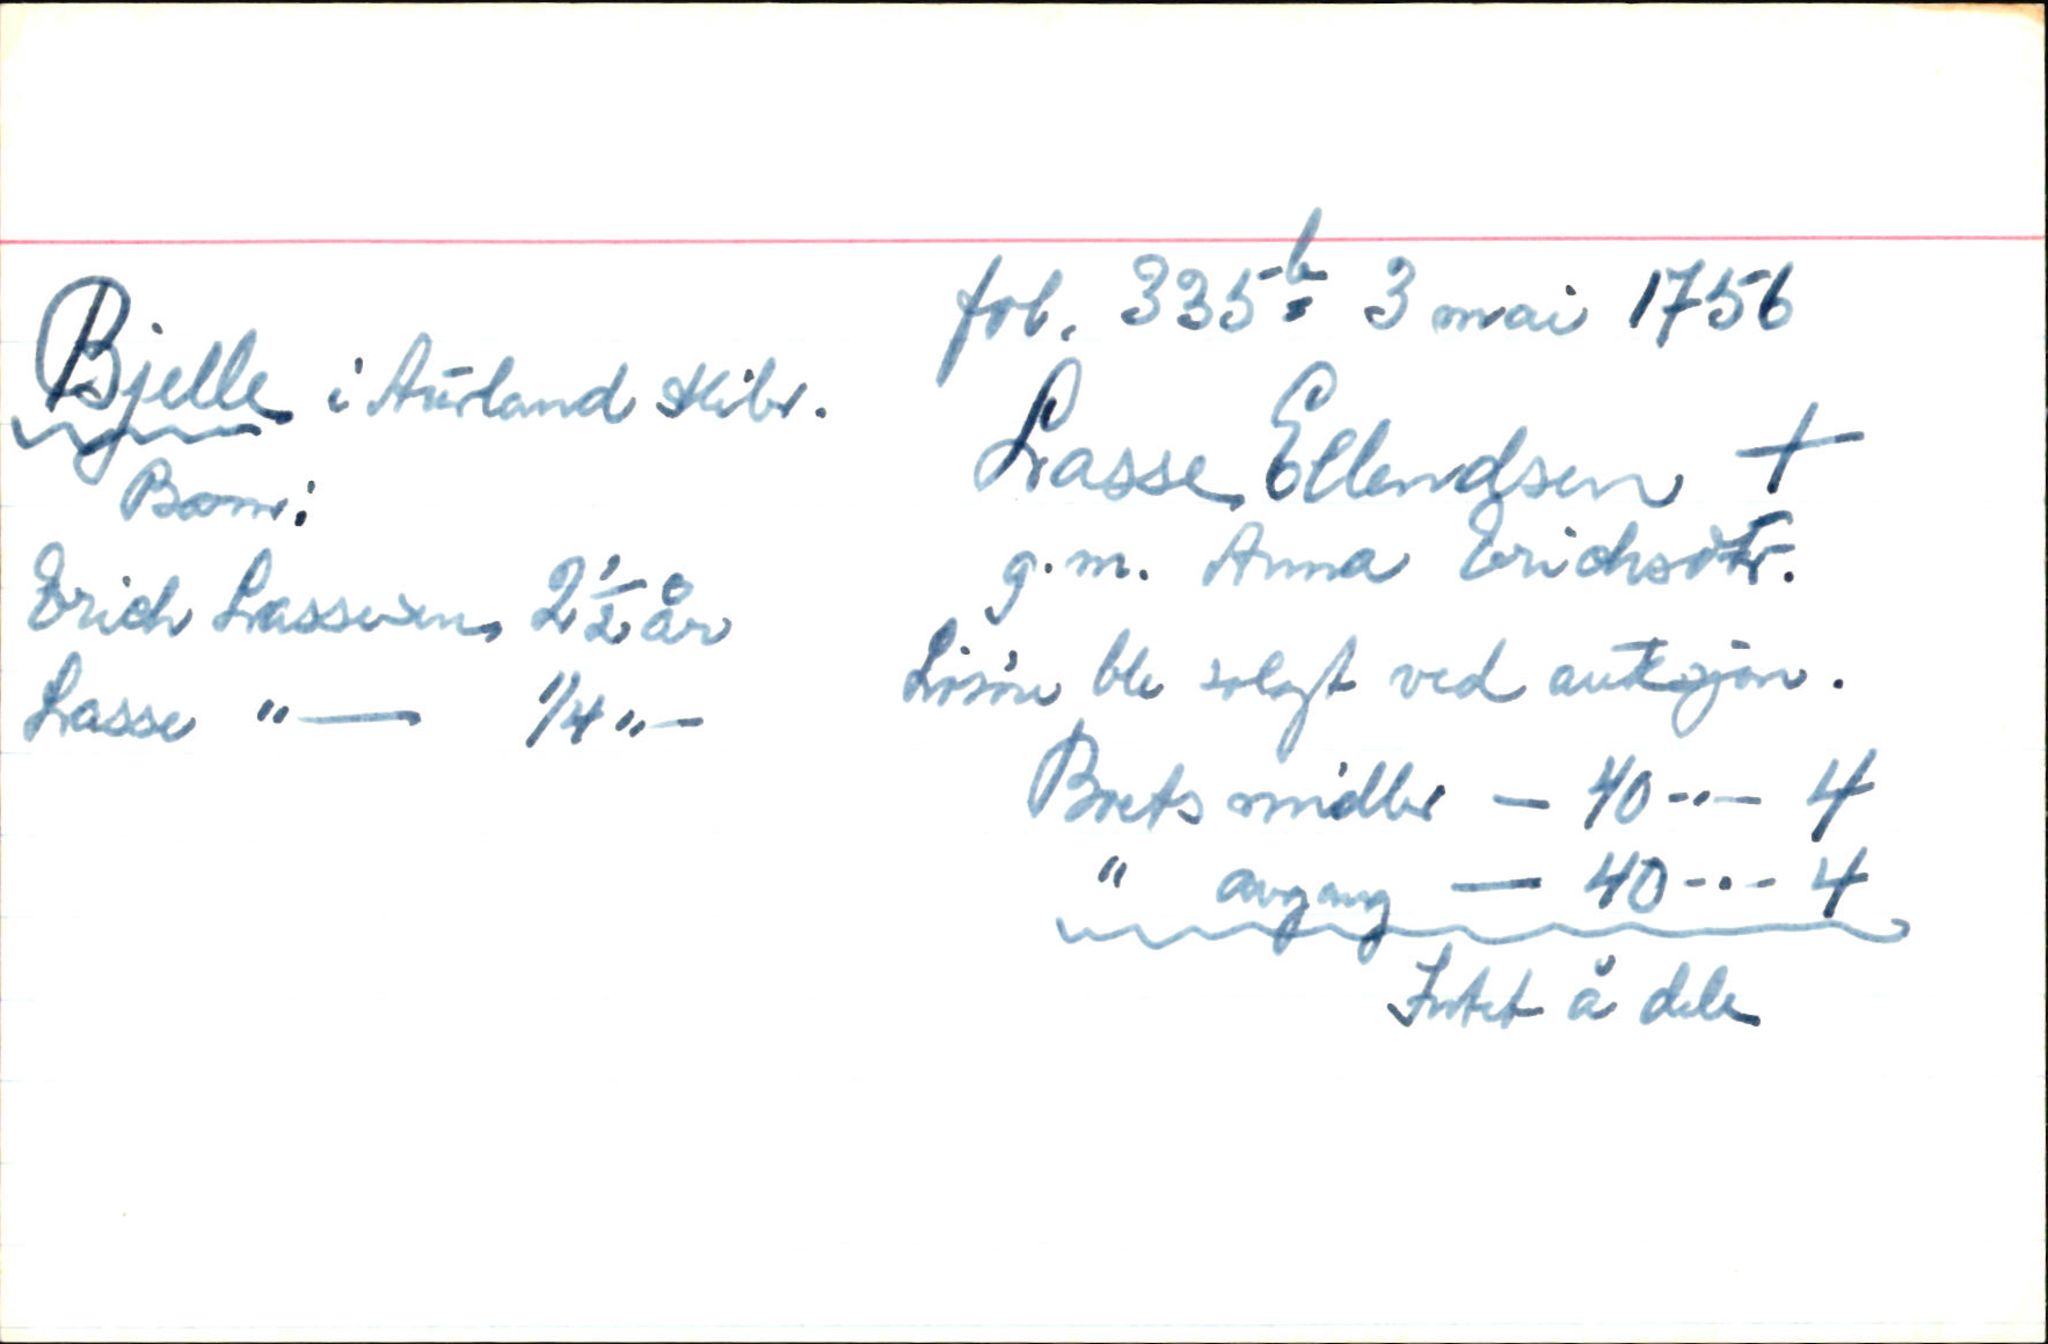 fol. 335b 3 mai 1756
Bjelle i Aurland skibr.
Lasse Ellendsen +
Barn:
g.m. Anna Erichsdtr.
Erich Lassesen 2 1/2 år
Løsøre ble solgt ved auksjon.
Lasse "— 1/4 "—
Boets midler — 40-"- 4
" avgang — 40-"- 4
Intet å dele